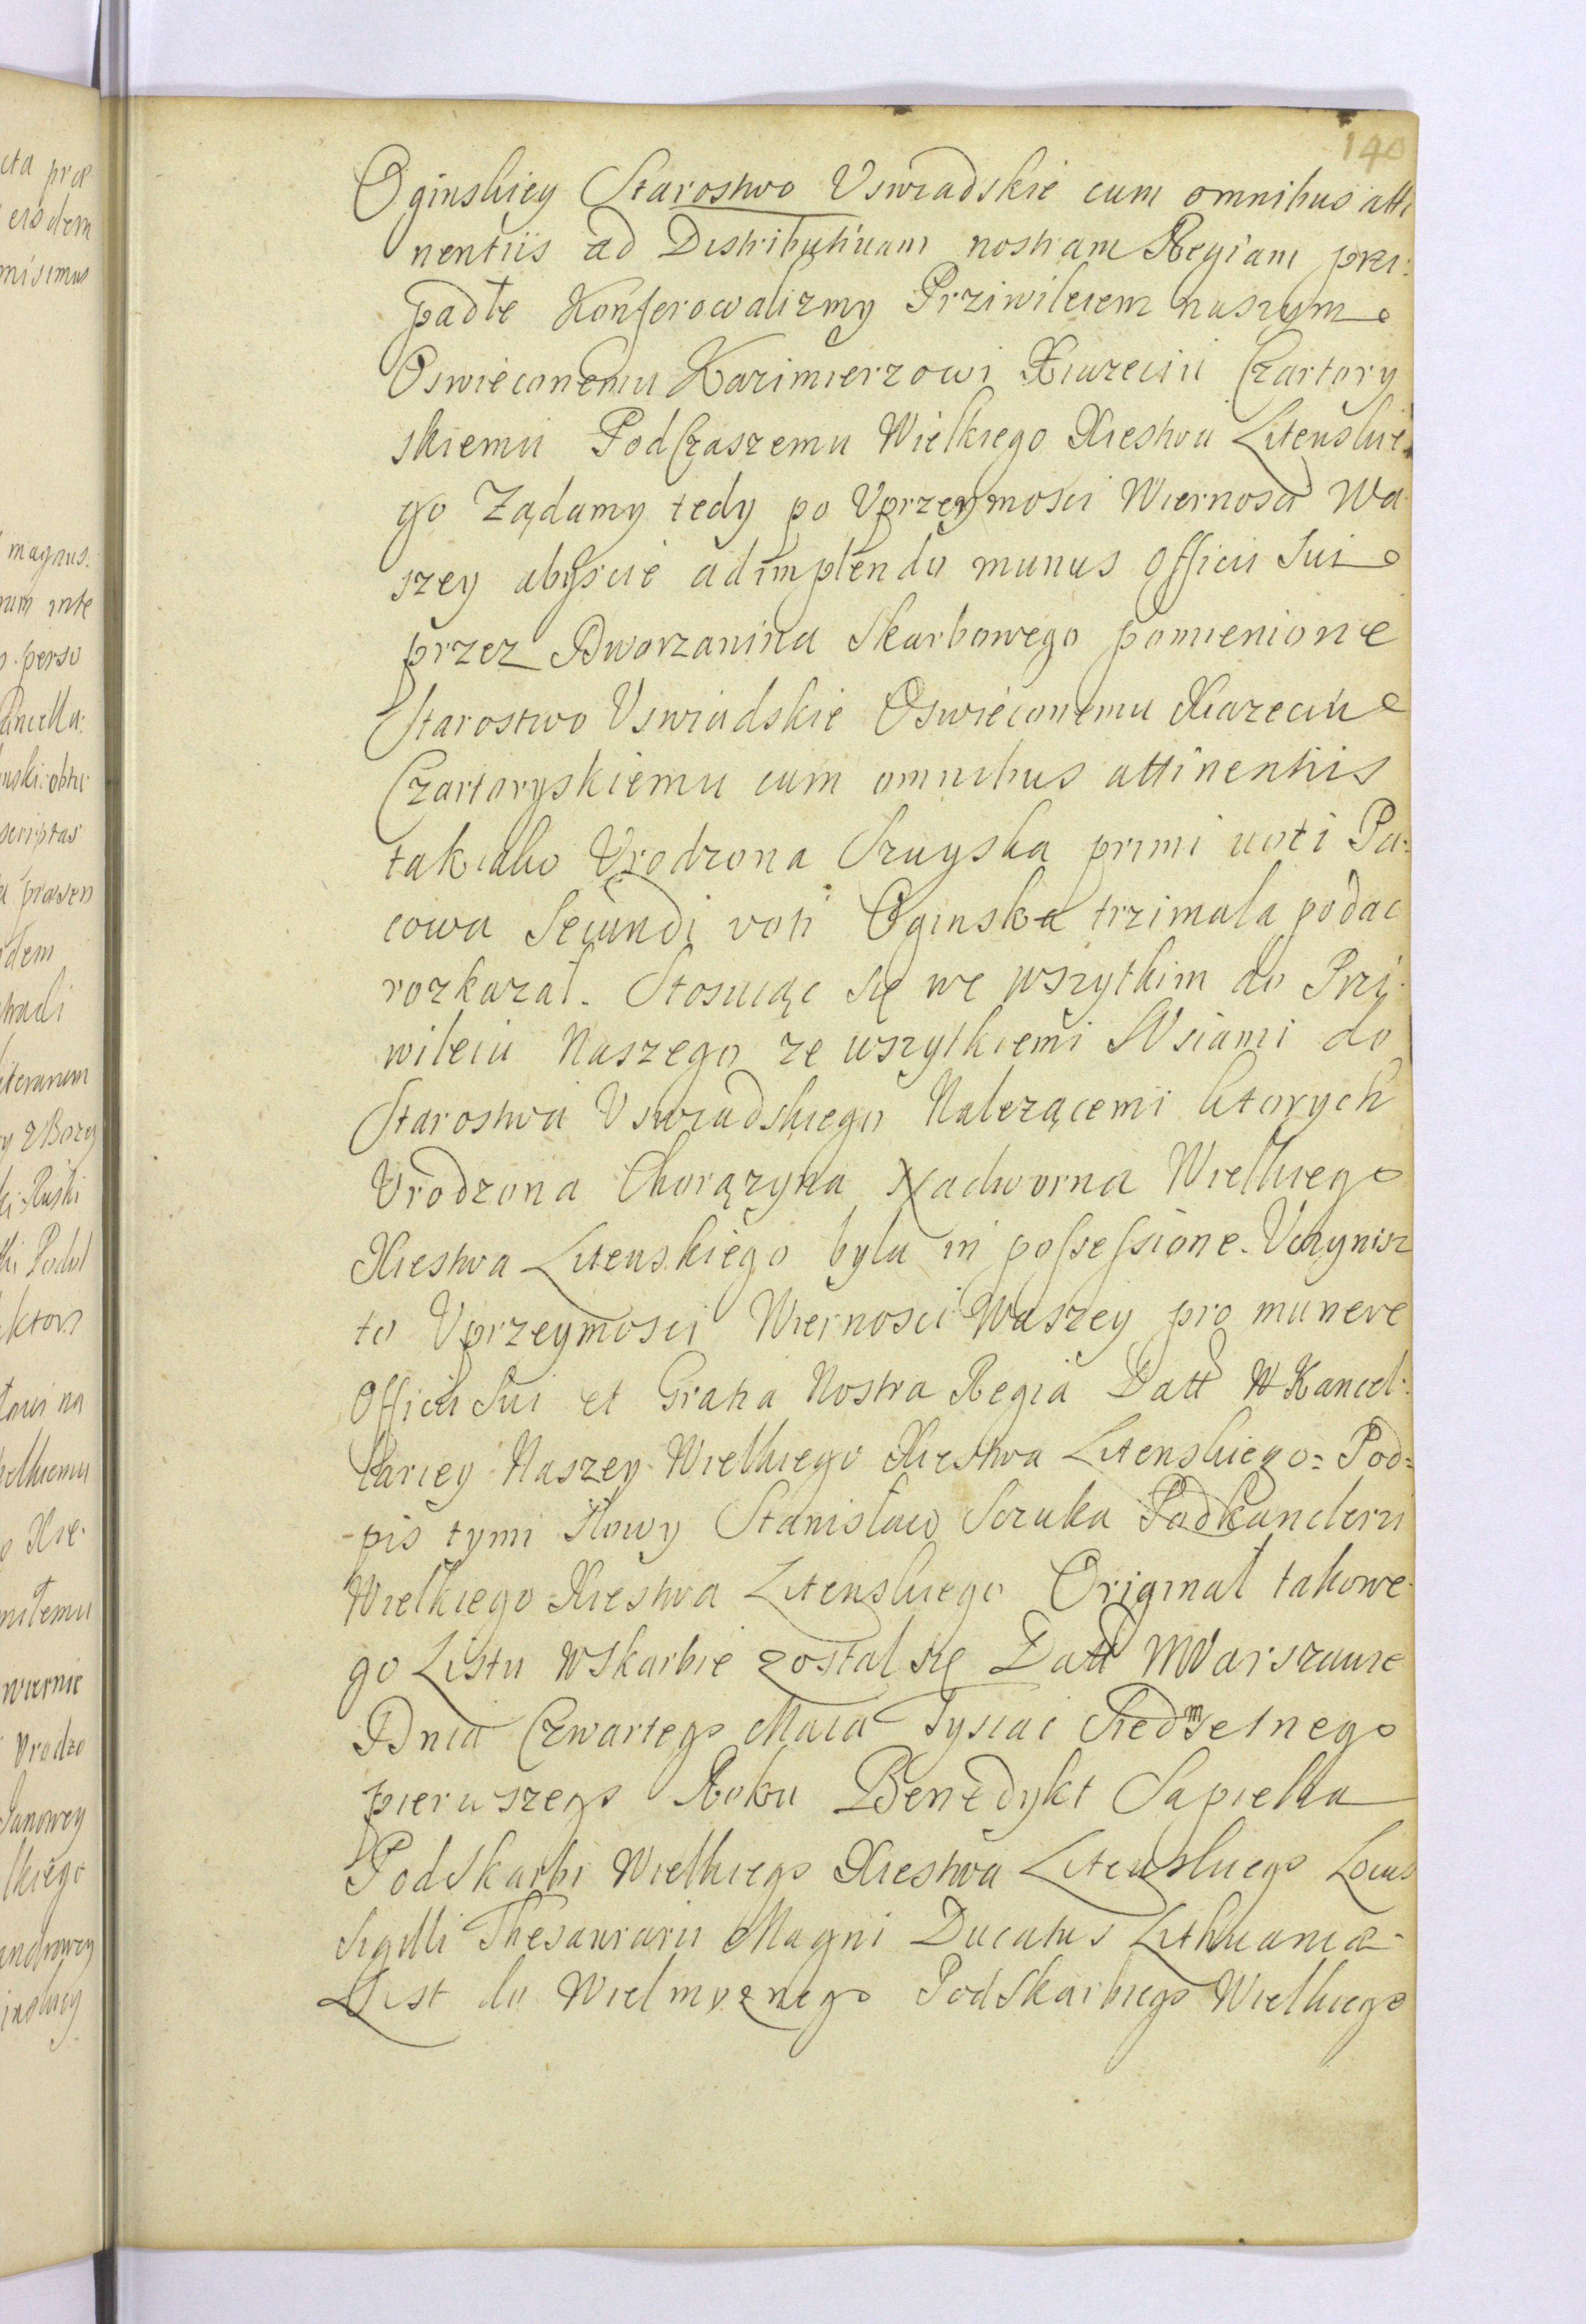 140
Oginskiey Starostwo Uswiadskie cum omnibus atti
nentiis ad Distributivam nostram Regiam przi:
padłe Konferowalizmy Prziwileiem naszym
Oswieconemu Kazimierzowi Xiazeciu Czartory
skiemu PodCzaszemu Wielkiego Xiestwa Litewskie
go Ządamy tedy po Vprzeymosci Wiernosci Wa
szey abyscie adimplendo munus officii Sui
przez Dworzanina Skarbowego pomienione
Starostwo Vswiadskie Oswieconemu Xiazeciu
Czartoryskiemu cum omnibus attinentiis
tak iako Vrodzona Szuyska primi voti Pa:
cowa Secundi voti Oginska trzimala podac
rozkazał. Stosuiąc się we wszytkim do Przi
wileiu Naszego ze wszytkiemi Wsiami do
Starostwa Vswiadskiego Nalezącemi ktorych
Vrodzona Chorązyna Nadworna Wielkiego
Xiestwa Litewskiego byla in possessione. Vczynisz
to Vprzeymosci Wiernosci Waszey pro munere
Officii Sui et Gratia Nostra Regia Datt W Kancel:
lariey Naszey Wielkiego Xiestwa Litewskiego: Pod:
pis tymi Słowy Stanisław Sczuka Podkanclerzi
Wielkiego Xiestwa Litewskiego Originał takowe
go Listu w Skarbie zostal się Datt W Warszawie
Dnia Czwartego Maia Tysiac Siedmsetnego
pierwszego Roku Benedykt Sapieha
PodSkarbi Wielkiego Xiestwa Litewskiego Locus
Sigilli Thesaurarii Magni Ducatus Lithuaniæ
List do Wielmoznego PodSkarbiego Wielkiego
cta præ
eisdem
misimus
magnus.
rum inte
perso
Cancella:
scriptas
præsen
idem
z Bozey
Ruski
Podol
na
Xie
wiernie
Vrodzo
Janowey